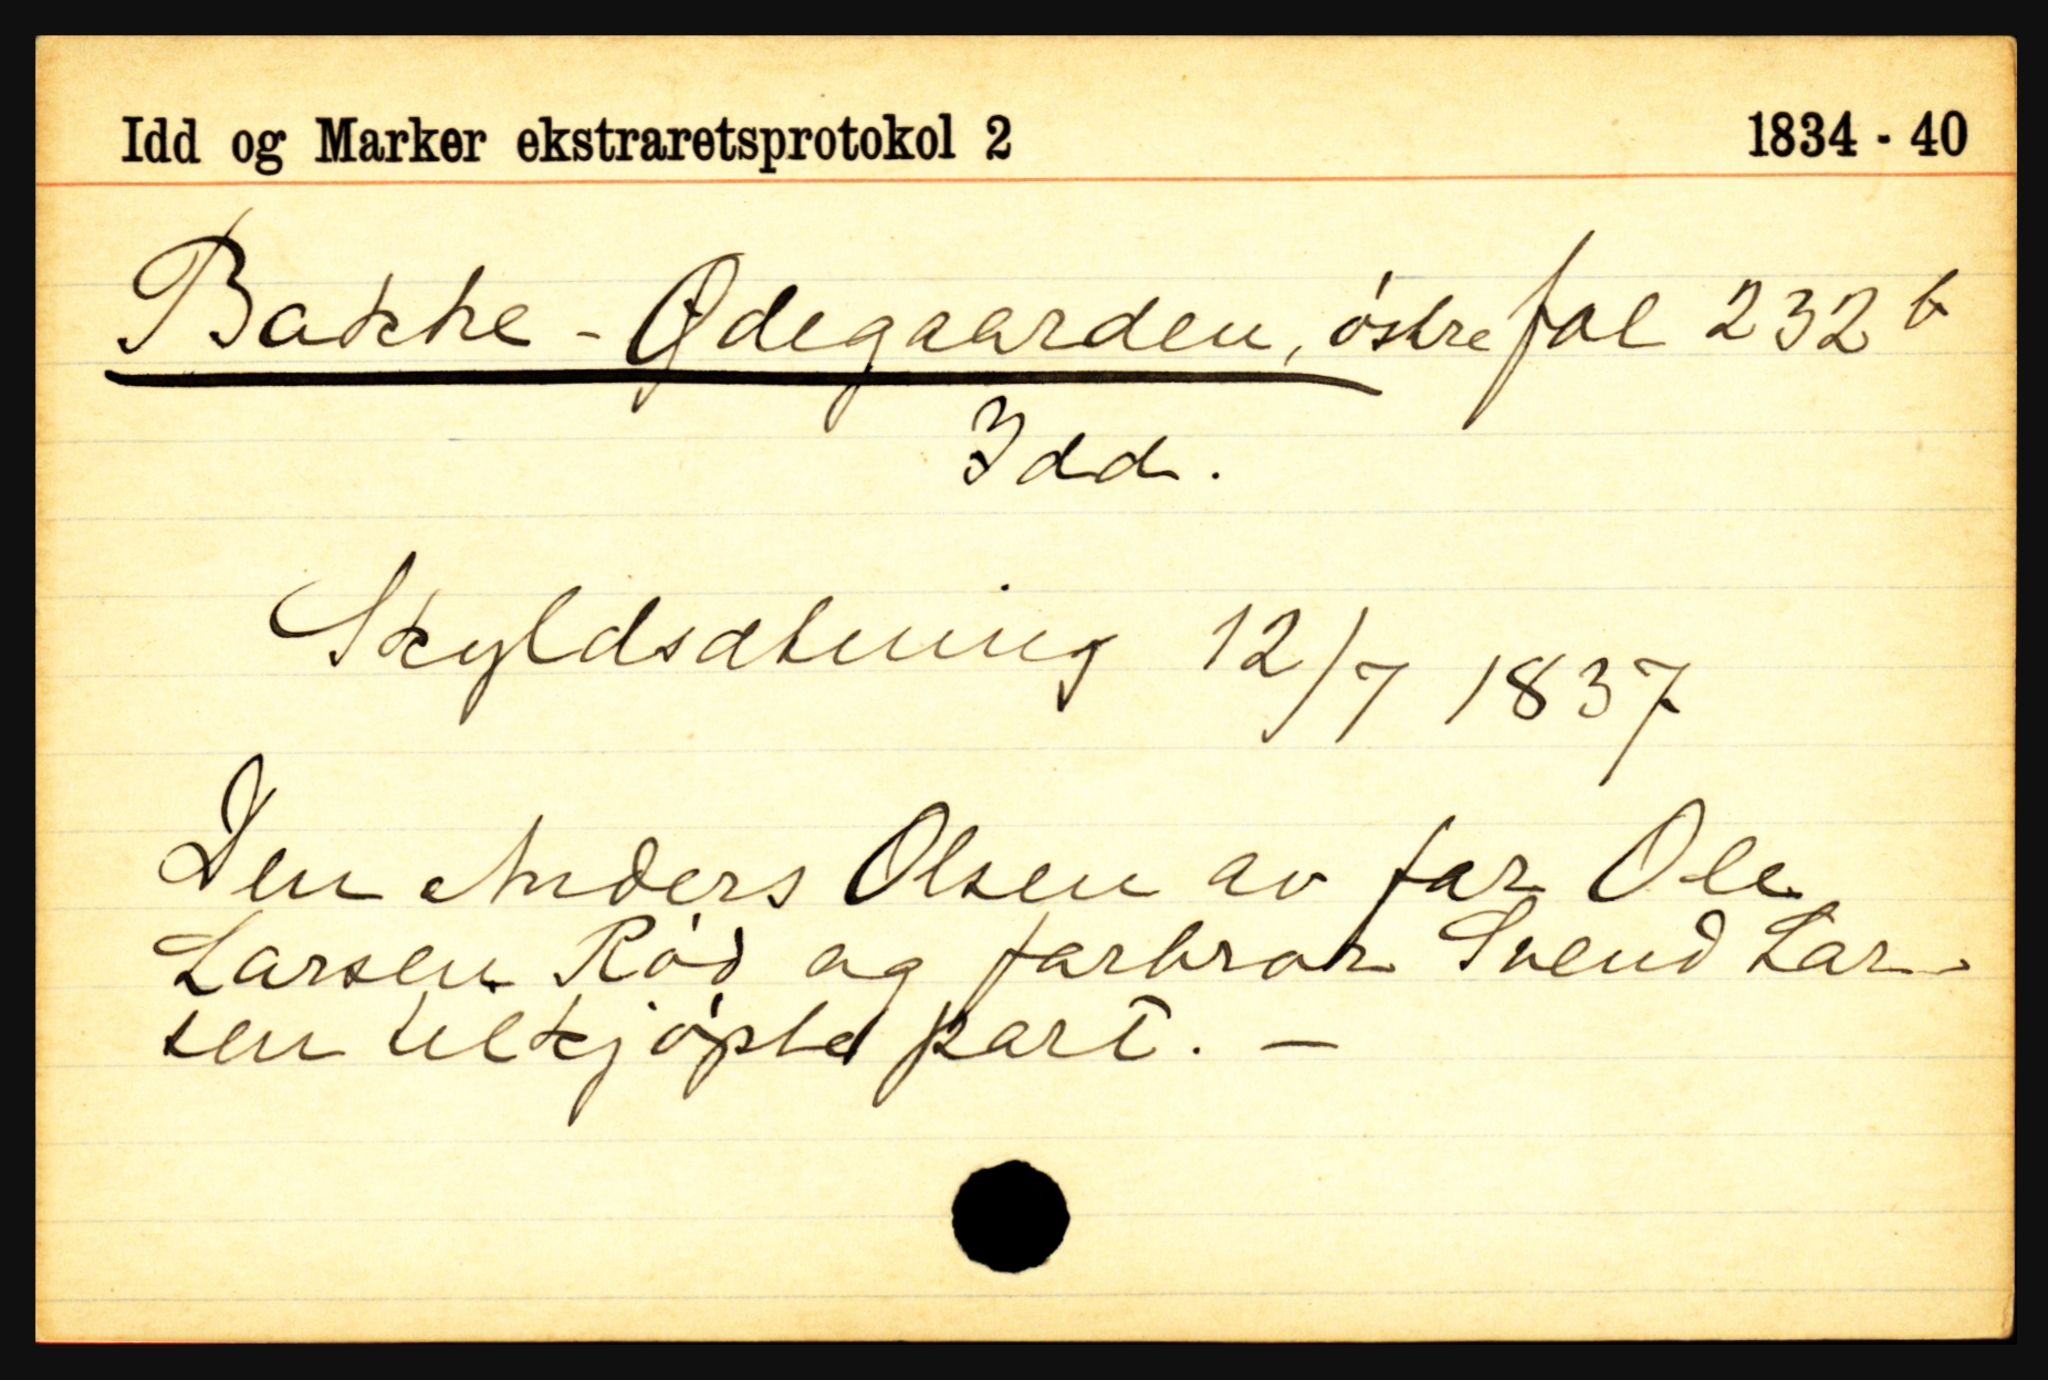 Idd og Marker ekstraretsprotokol 2 1834 - 40
Bakke - Ødegaarden, östre fol 232 b
Idd.
Skyldsætning 12/7 1837
Den Anders Olsen av far Ole
Larsen Röd og farbror Svend Lar-
sen tilkjöpte part. -